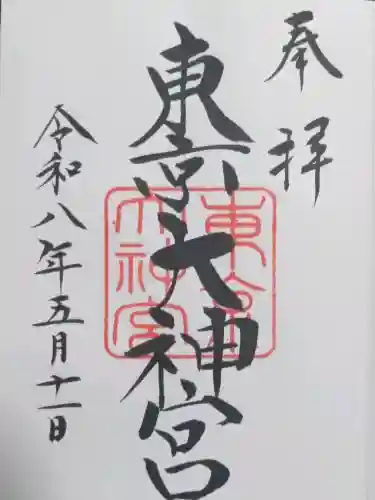 奉拝
東京大神宮
東京大神宮
令和八年五月十一日